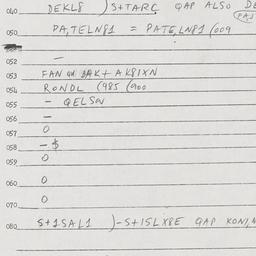 040 DEKL8 )S+TARC QAP ALSO DE
(PAJ
050 PA,TELN81 = PATG,LN81 (009
052 —
053 FAN JAK+ AK8IXN
054 RONDL (985 (900
055 - QELSON
056 —
057 O
058 - $
059 O
060 O
070 O
080 S+1SAL1 )-S+ISLX8E QAP KON,